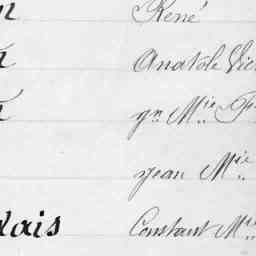 René
Anatole Vic
Jn Mie
Jean Mie
lais Constant Mie